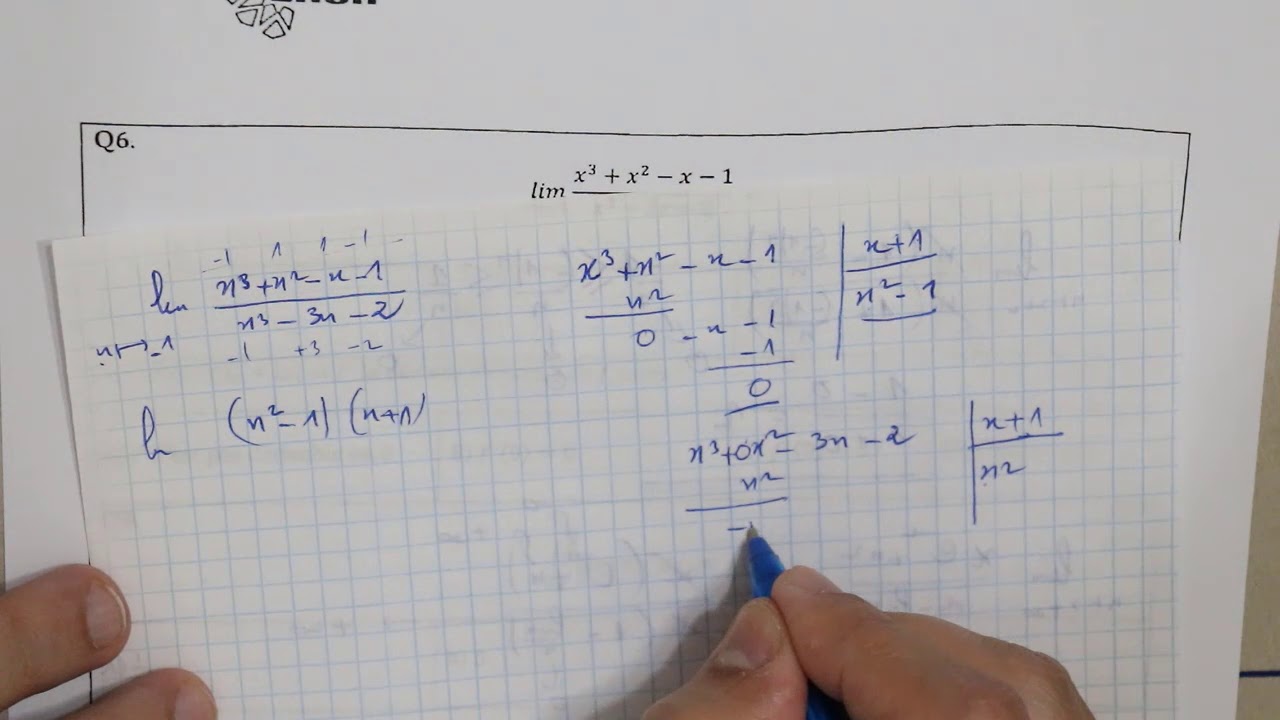 Q6.
lim x³ + x² − x − 1
-1 1 1 -1
lim x³+x²-x-1
x³ - 3x - 2
x ↦ -1
-1 +3 -2
(x²-1) (x+1)
x³+x²-x-1 | x+1
x² | x²-1
0 -x -1
-1
0
x³+0x²- 3x -2 | x+1
x² | x²
-